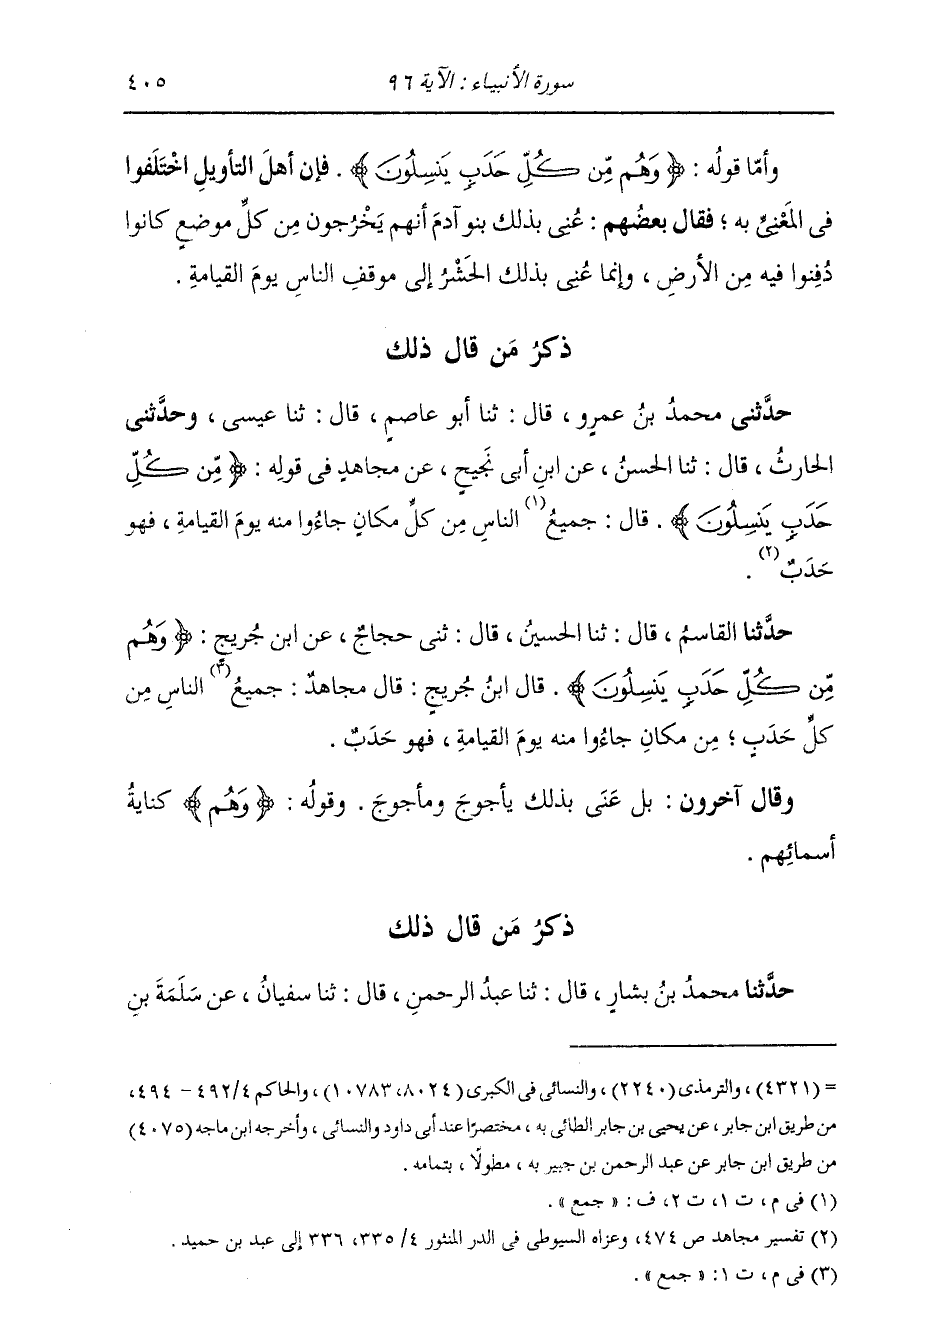 سورة الأنبياء : الآية ٩٦ ٤٠٥
وأمّا قولُه : ﴿ وَهُم مِّن كُلِّ حَدَبٍ يَنسِلُونَ ﴾ . فإن أهلَ التأويلِ اخْتَلَفوا
فى المَعْنِىِّ به ؛ فقال بعضُهم : عُنِى بذلك بنو آدمَ أنهم يَخْرُجون مِن كلِّ موضعٍ كانوا
دُفِنوا فيه مِن الأرضِ ، وإنما عُنِى بذلك الحَشْرُ إلى موقفِ الناسِ يومَ القيامةِ .
ذكرُ مَن قال ذلك
حدَّثنى محمدُ بنُ عمرٍو ، قال : ثنا أبو عاصمٍ ، قال : ثنا عيسى ، وحدَّثنى
الحارثُ ، قال : ثنا الحسنُ ، عن ابنِ أبى نَجيحٍ ، عن مجاهدٍ فى قولِه : ﴿ مِّن كُلِّ
حَدَبٍ يَنسِلُونَ ﴾ . قال : جميعُ(١) الناسِ مِن كلِّ مكانٍ جاءُوا منه يومَ القيامةِ ، فهو
حَدَبٌ(٢) .
حدَّثنا القاسمُ ، قال : ثنا الحسينُ ، قال : ثنى حجاجٌ ، عن ابن جُريجٍ : ﴿ وَهُم
مِّن كُلِّ حَدَبٍ يَنسِلُونَ ﴾ . قال ابنُ جُريجٍ : قال مجاهدٌ : جميعُ(٣) الناسِ مِن
كلِّ حَدَبٍ ؛ مِن مكانٍ جاءُوا منه يومَ القيامةِ ، فهو حَدَبٌ .
وقال آخرون : بل عَنَى بذلك يأجوجَ ومأجوجَ . وقولُه : ﴿ وَهُم ﴾ كنايةُ
أسمائِهم .
ذكرُ مَن قال ذلك
حدَّثنا محمدُ بنُ بشارٍ ، قال : ثنا عبدُ الرحمنِ ، قال : ثنا سفيانُ ، عن سَلَمَةَ بنِ
= (٤٣٢١) ، والترمذى (٢٢٤٠) ، والنسائى فى الكبرى (٨٠٢٤، ١٠٧٨٣) ، والحاكم ٤/ ٤٩٢ - ٤٩٤،
من طريق ابن جابر ، عن يحيى بن جابر الطائى به ، مختصرًا عند أبى داود والنسائى ، وأخرجه ابن ماجه (٤٠٧٥)
من طريق ابن جابر عن عبد الرحمن بن جبير به ، مطولًا ، بتمامه .
(١) فى م ، ت ١، ت ٢، ف : « جمع » .
(٢) تفسير مجاهد ص ٤٧٤، وعزاه السيوطى فى الدر المنثور ٤/ ٣٣٥، ٣٣٦ إلى عبد بن حميد .
(٣) فى م ، ت ١: « جمع » .